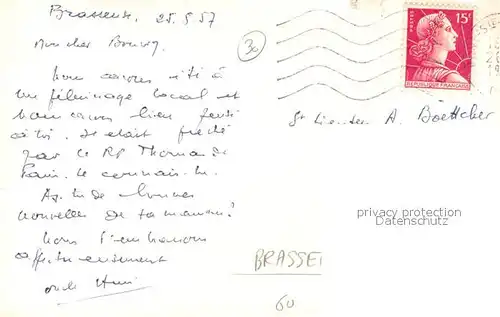 Brasseuse, 25.5.57
Mon cher Bouvry,
Nous avons été à
un pèlerinage local et
nous avons bien pensé
à toi. Il était prêché
par le RP Thomas de
Paris. Le connais-tu.
As-tu de bonnes
nouvelles de ta maman?
Nous t'embrassons
affectueusement
30
POSTES 15F
REPUBLIQUE FRANÇAISE
A. Böettcher
privacy protection
Datenschutz
BRASSE
60